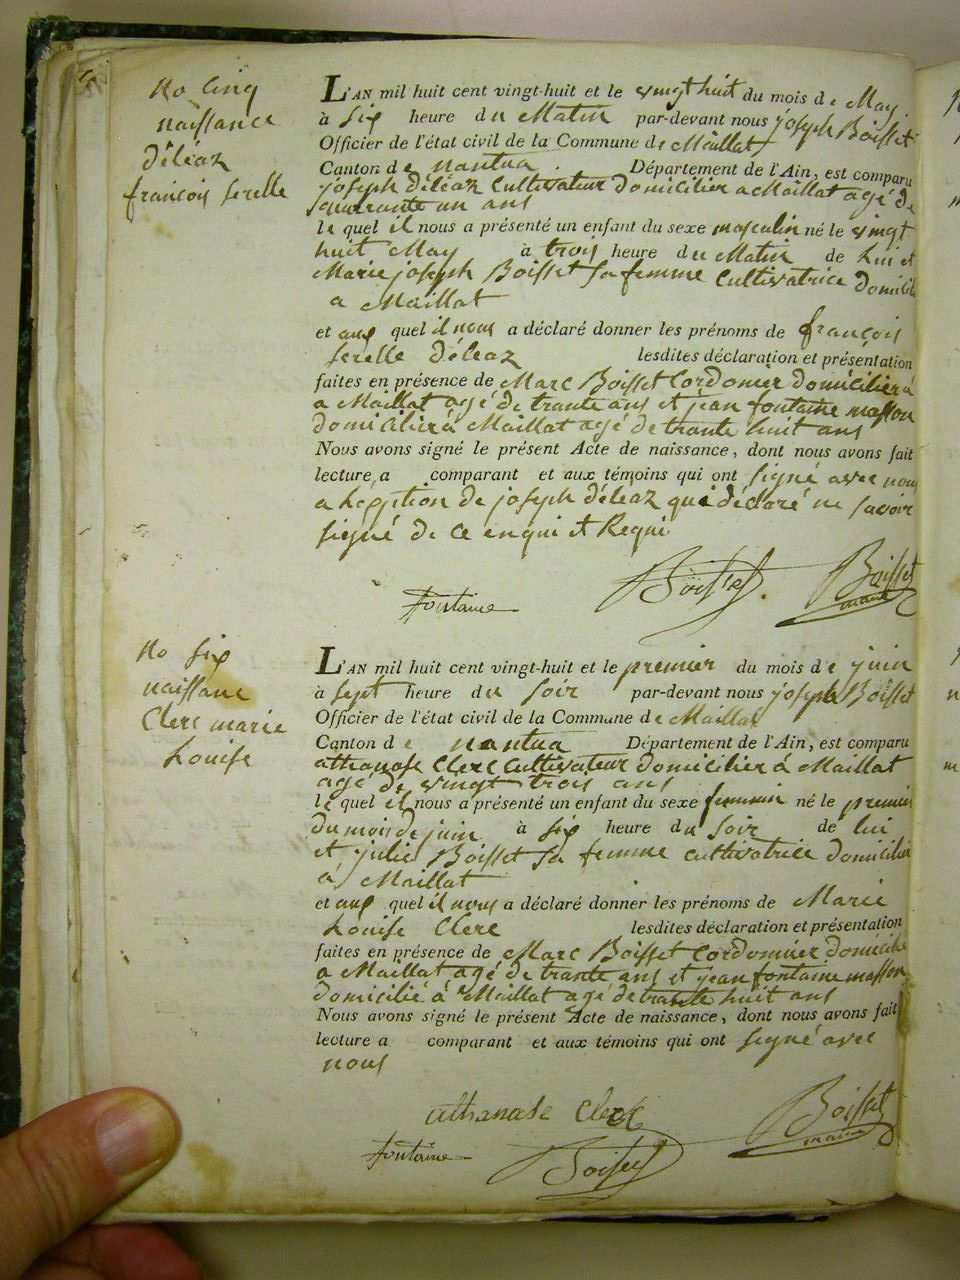 No Cinq
naissance
déléaz
francois serelle
L'AN mil huit cent vingt-huit et le vingt huit du mois de May
à six heure du Matin par-devant nous joseph Boisset
Officier de l'état civil de la Commune de Maillat
Canton de nantua Département de l'Ain, est comparu
joseph déléaz Cultivateur domicilier a Maillat agé de
quarante un ans
le quel il nous a présenté un enfant du sexe masculin né le vingt
huit May à trois heure du Matin de lui et
Marie joseph Boisset sa femme Cultivatrice domicili
a Maillat
et aux quel il nous a déclaré donner les prénoms de françois
serelle déléaz lesdites déclaration et présentation
faites en présence de Marc Boisset Cordonier domicilier à
a Maillat agé de trante ans et jean fontaine masson
domicilier à Maillat agé de trante huit ans
Nous avons signé le présent Acte de naissance, dont nous avons fait
lecture a comparant et aux témoins qui ont signé avec nous
a de joseph déléaz qui a déclaré ne savoir
signé de ce enqui et Requi
fontaine Boisset Boisset
marc
No six
naissane
Clerc marie
Louise
L'AN mil huit cent vingt-huit et le premier du mois de juin
à sept heure du soir par-devant nous joseph Boisset
Officier de l'état civil de la Commune de Maillat
Canton de nantua Département de l'Ain, est comparu
athanase Clerc Cultivateur domicilier à Maillat
agé de vingt trois ans
le quel il nous a présenté un enfant du sexe feminin né le premier
du mois de juin à six heure du soir de lui
et julie Boisset sa femme cultivatrice domicilier
à Maillat
et aux quel il nous a déclaré donner les prénoms de Marie
Louise Clerc lesdites déclaration et présentation
faites en présence de Marc Boisset Cordonnier domicilié
a Maillat agé de trante ans et jean fontaine masson
domicilié à Maillat agé de trante huit ans
Nous avons signé le présent Acte de naissance, dont nous avons fait
lecture a comparant et aux témoins qui ont signé avec
nous
athanase Clerc Boisset
marc
fontaine Boisset